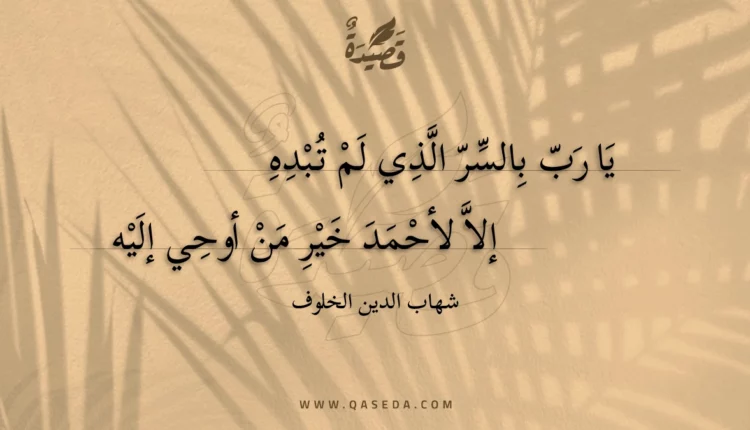 قَصِيدَةٌ
يَا رَبّ بِالسِّرّ الَّذِي لَمْ تُبْدِهِ
إلاَّ لأحْمَدَ خَيْرِ مَنْ أوحِي إلَيْه
شهاب الدين الخلوف
WWW.QASEDA.COM